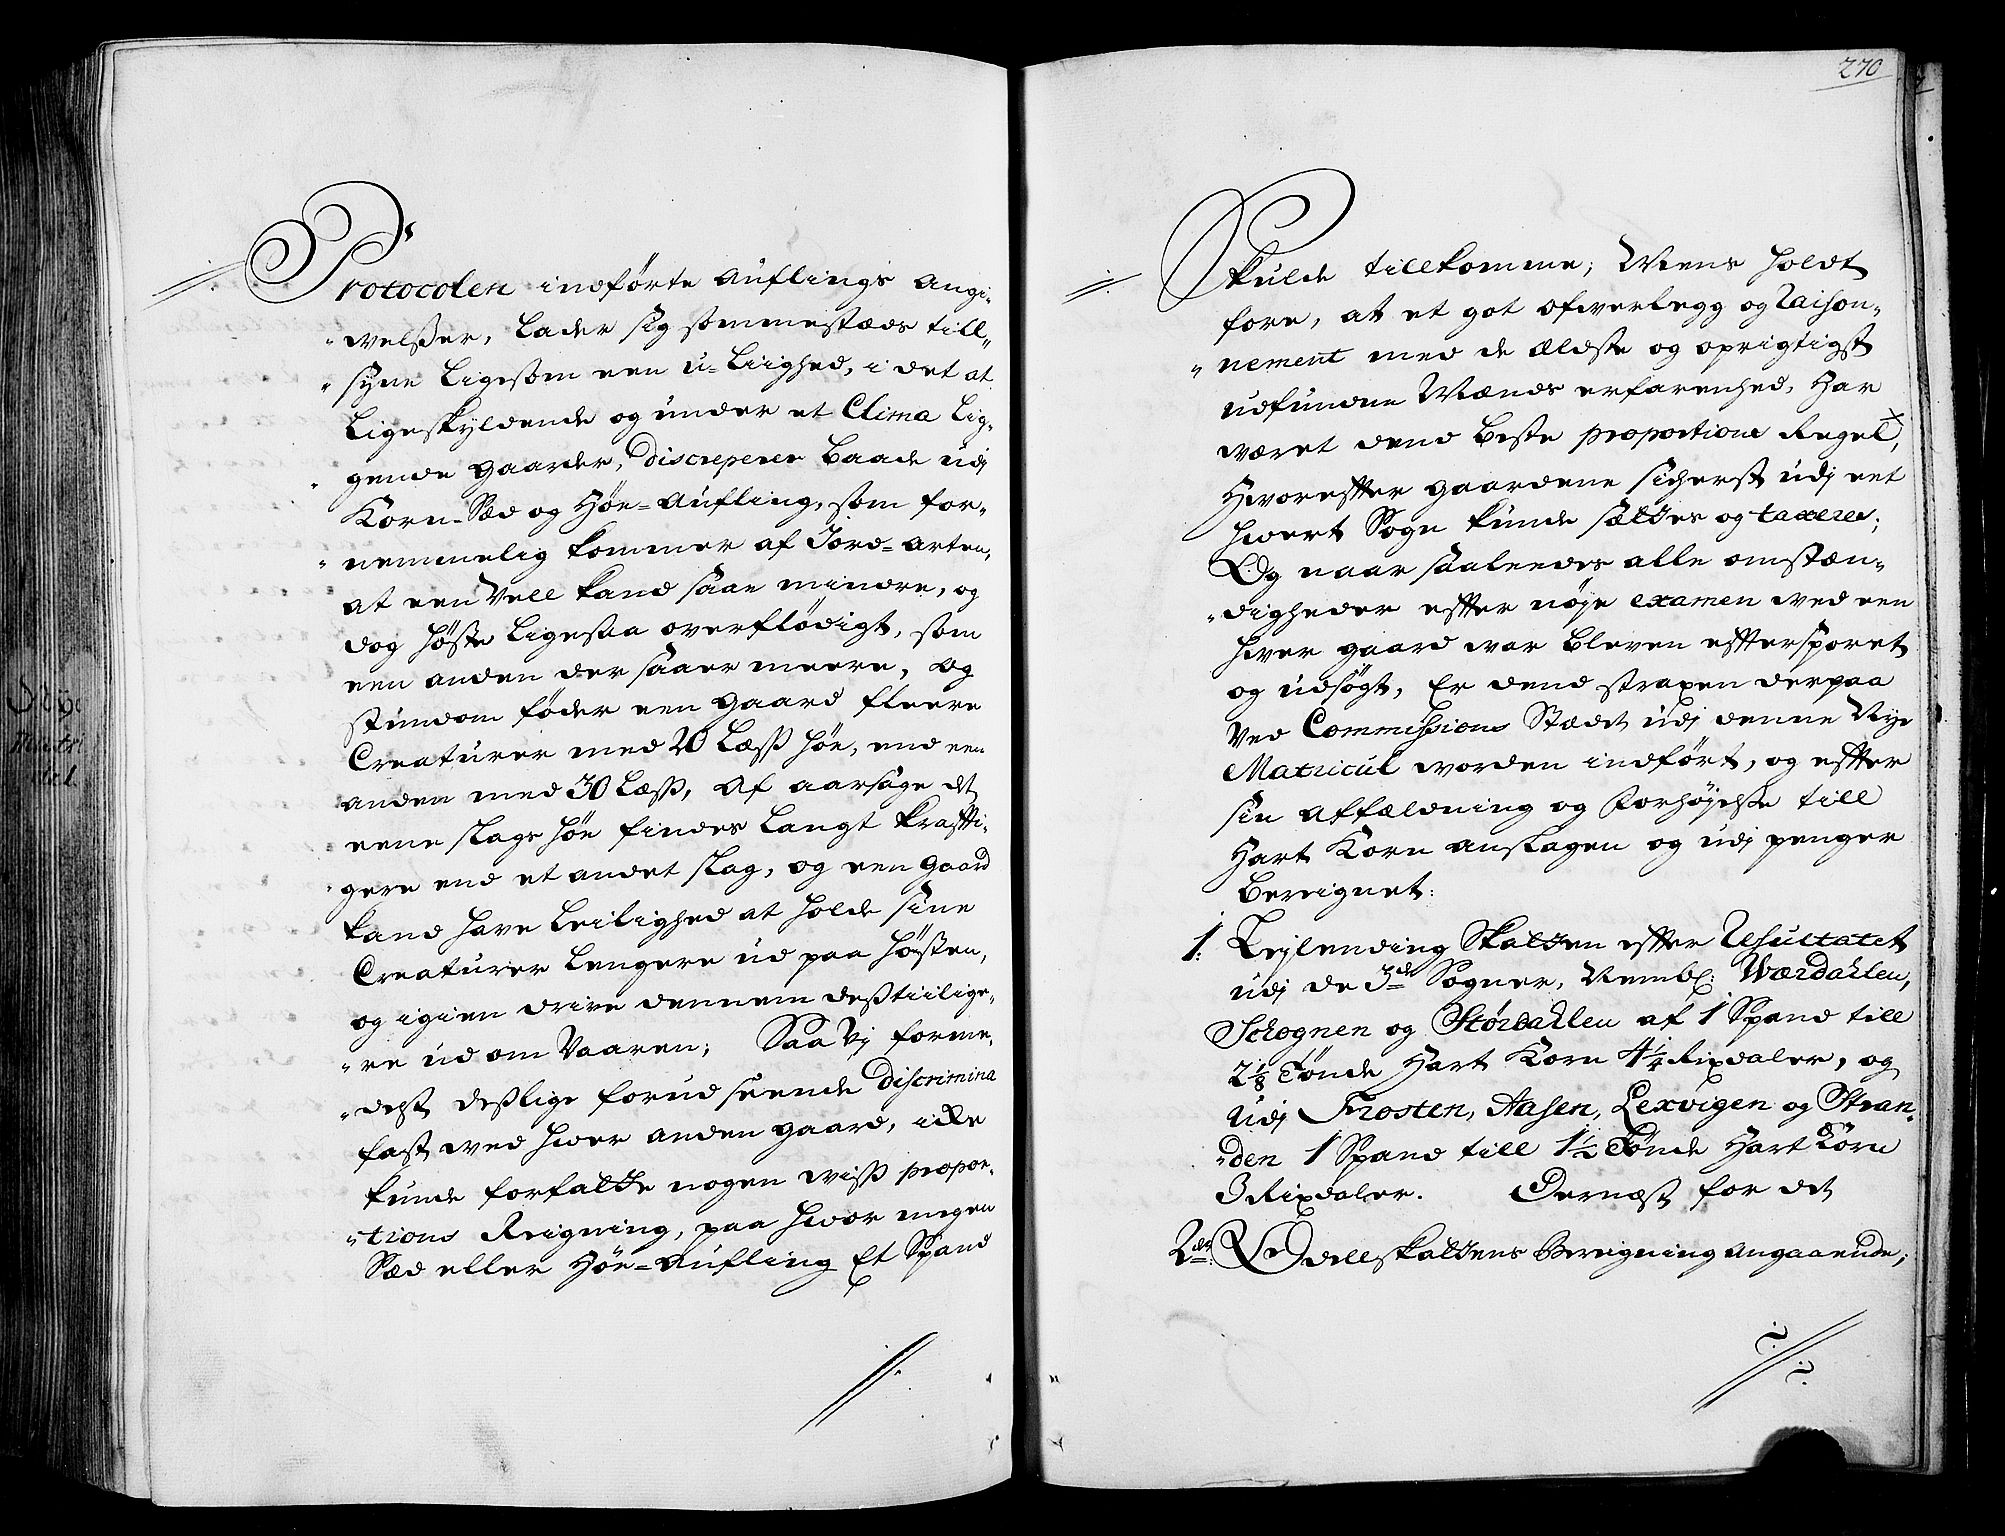 Protocolen indførte auflings angi-
welsser, lader sig sommestæds till-
syne ligesom een u-liighed, i det at
ligeskyldende og under et Clima lig-
gende gaarder, discreperer baade udj
Korn-Sæd og Høe-aufling, som for-
nemmelig kommer af Jord-arten,
at een Vell kand saae mindre, og
dog høste ligesaa overflødigt, som
een anden der saaer meere, og
stundom føder een gaard fleere
Creaturer med 20 Læss høe, end een
anden med 30 Læss, af aarsage det
eene slags høe findes langt krafftti-
gere end et andet slag, og een gaard
kand have leilighed at holde sine
Creaturer lengere ud paa høsten,
og igien drive dennem desstiilige-
re ud om Vaaren; Saa Vj forme-
delst desslige forud seende discrimina
fast wed hwer anden gaard, icke
kunde forfatte nogen wiss propor-
tions Reigning, paa hwor megen
Sæd eller Høe-aufling Et Spand
270
Skulde tillkomme; Mens holdt
fore, at et got ofwerlegg og Raison-
nement med de ældste og oprigtigst
udfundne Mænds erfarenhed, Har
wæret dend beste proportions Regel,
Hworeffter gaardene sicherst udj eet
hwert Sogn kunde sættes og taxeres;
Og naar saaleedes alle omstæn-
digheder effter nøje examen wed een
hwer gaard war bleven efftersporet
og udsøgt, Er dend straxen derpaa
Ved Commissions Stædet udj denne Nye
Matricul worden indført, og effter
sin affældning og Forhøjelse till
Hart Korn anslagen og udj penger
bereignet:
1. Lejlending Skatten effter Resultatet
udj de 3de Sogner, Nembl: Wærdahlen,
Schognen og Størdahlen af 1 Spand till
2 1/8 Tønde Hart Korn 4 1/4 Rixdaler, og
Udj Frosten, Aasen, Lexvigen og Stran-
den 1 Spand till 1 1/2 Tønde Hart Korn
3 Rixdaler. Dernæst for det
2det Odellskattens Bereigning angaaende;